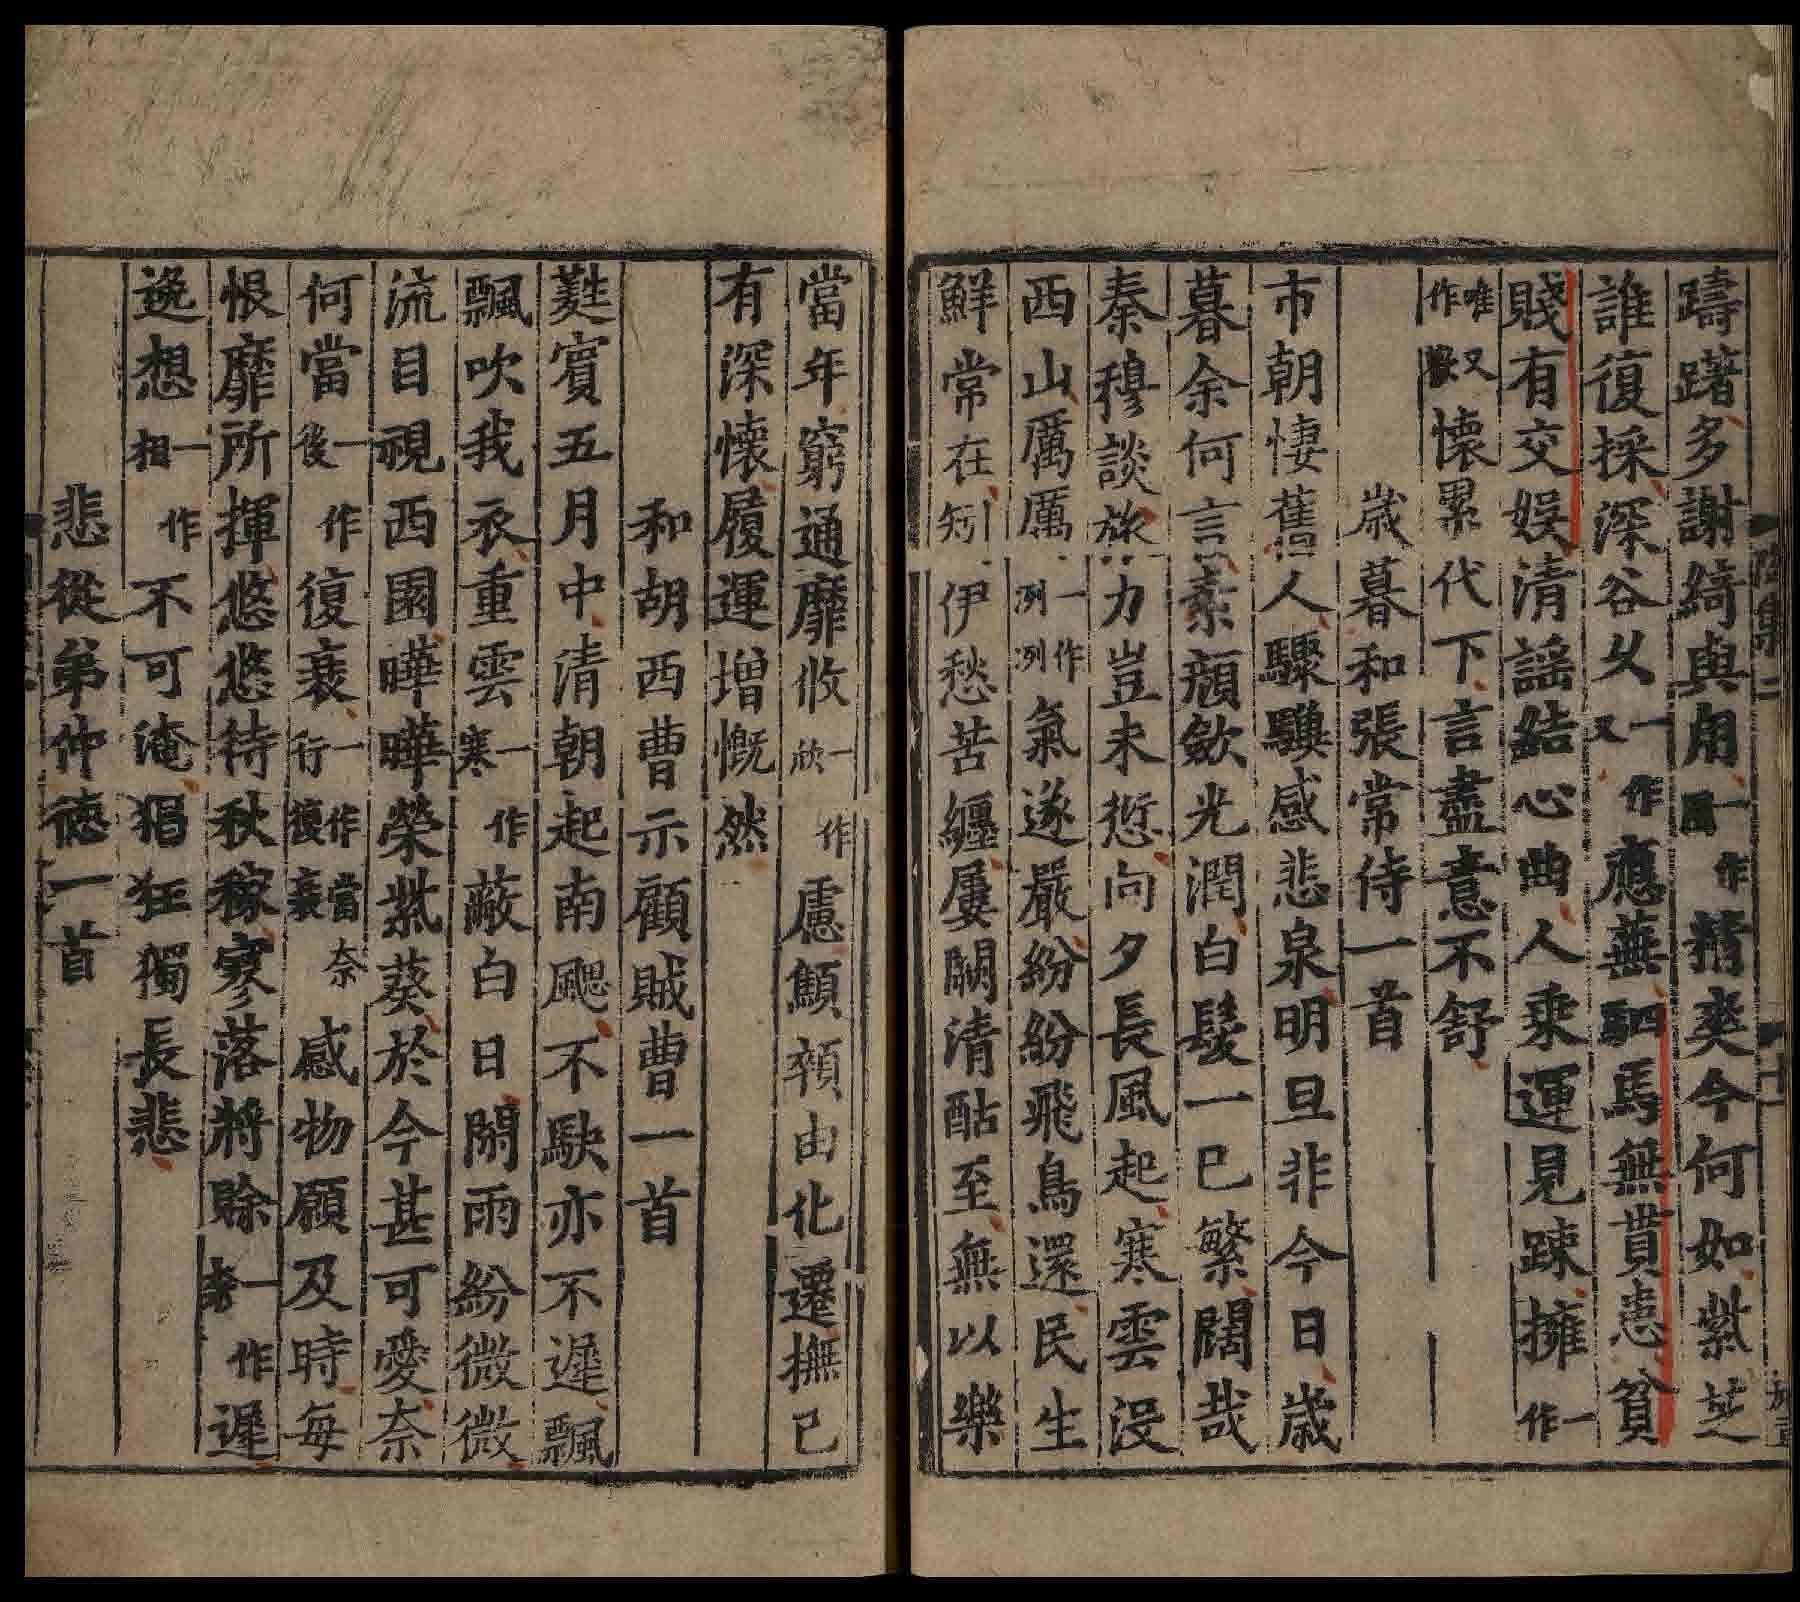 躊躇多謝綺與甪一作園精爽今何如紫芝
誰復採深谷久一作又應蕪駟馬無貰患貧
賤有交娛清謠結心曲人乘運見踈擁一作
唯又作懷累代下言盡意不舒
歲暮和張常侍一首
市朝悽舊人驟驥感悲泉明旦非今日歲
暮余何言素顏斂光潤白髮一已繁闊哉
秦穆談旅力豈未愆向夕長風起寒雲沒
西山厲厲一作冽冽氣遂嚴紛紛飛鳥還民生
鮮常在矧伊愁苦纏屢闕清酤至無以樂
當年窮通靡攸一作欣慮顦顇由化遷撫己
有深懷履運增慨然
和胡西曹示顧賊曹一首
蕤賓五月中清朝起南颸不駛亦不遲飄
飄吹我衣重雲一作寒蔽白日閒雨紛微微
流目視西園曄曄榮紫葵於今甚可愛奈
何當一作後復衰一作當行復衰奈感物願及時每
恨靡所揮悠悠待秋稼寥落將賒一作遲
逸想一作相不可淹猖狂獨長悲
悲從弟仲德一首